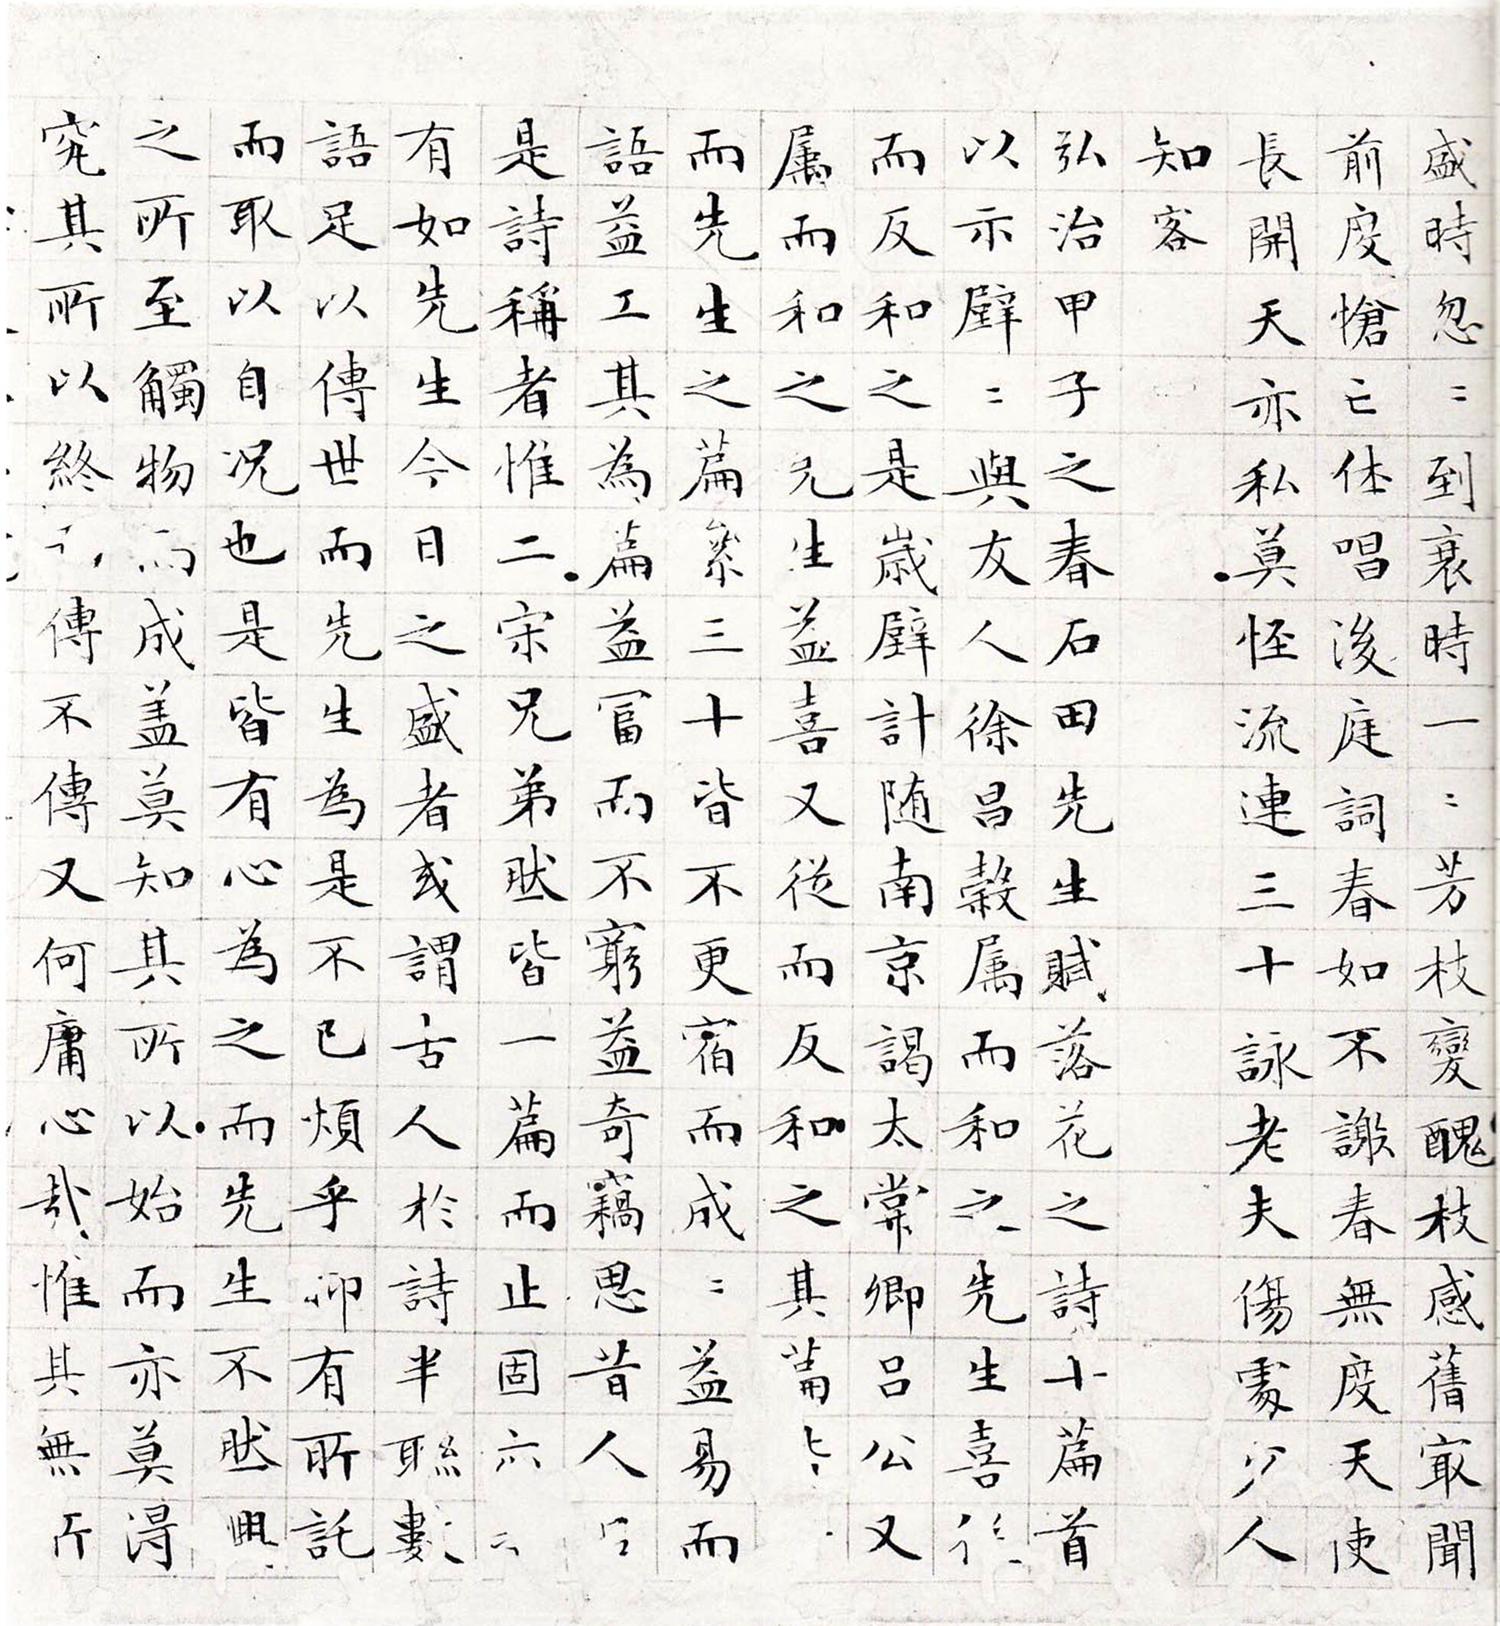 盛時忽〻到衰時一〻芳枝變醜枝感舊㝡聞
前度愴亡休唱後庭詞春如不謝春無度天使
長開天亦私莫怪流連三十詠老夫傷處少人
知客
弘治甲子之春石田先生賦落花之詩十篇首
以示璧〻與友人徐昌榖属而和之先生喜從
而反和之是歲璧計随南京謁太常卿呂公又
属而和之先生益喜又從而反和之其篇皆
而先生之篇纍三十皆不更宿而成〻益易而
語益工其為篇益冨而不窮益奇竊思昔人
是詩稱者惟二宋兄弟然皆一篇而止固六
有如先生今日之盛者或謂古人於詩半聮數
語足以傳世而先生為是不已煩乎抑有所託
而取以自况也是皆有心為之而先生不然興
之所至觸物而成盖莫知其所以始而亦莫淂
究其所以終而傳不傳又何庸心哉惟其無所